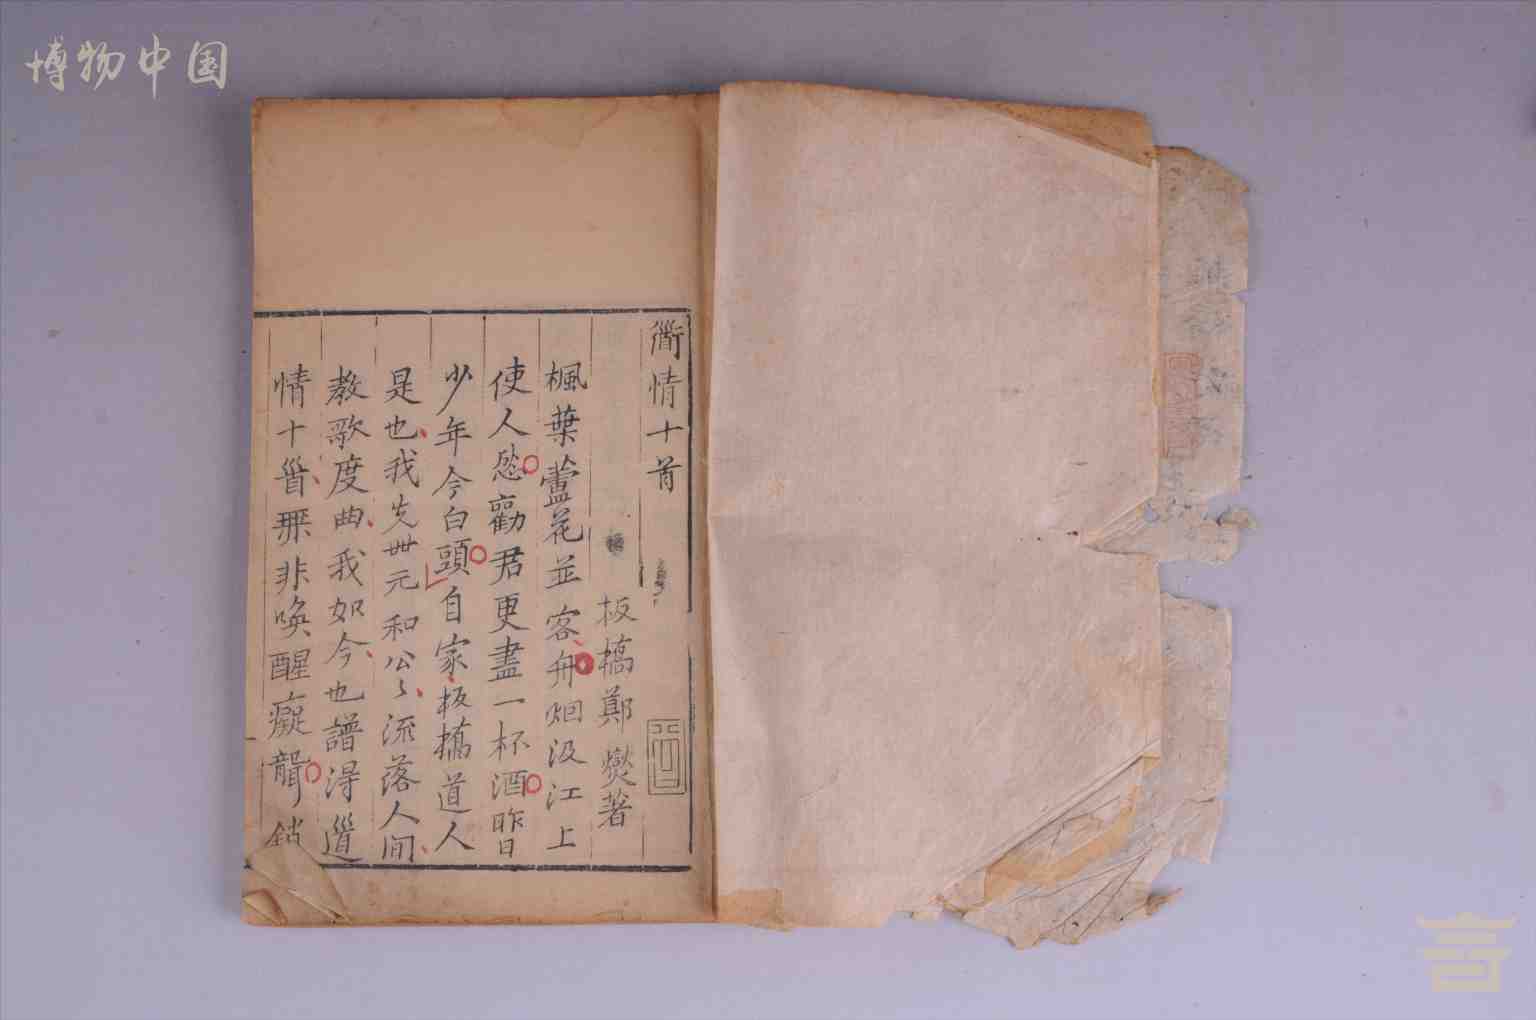 博物中国
衜情十首
板橋鄭燮著
楓葉蘆花並客舟烟汲江上
使人愁勸君更盡一杯酒昨日
少年今白頭自家板橋道人
是也我先丗元和公〻流落人间
教歌度曲我如今也譜淂衜
情十首無非喚醒癡聾銷